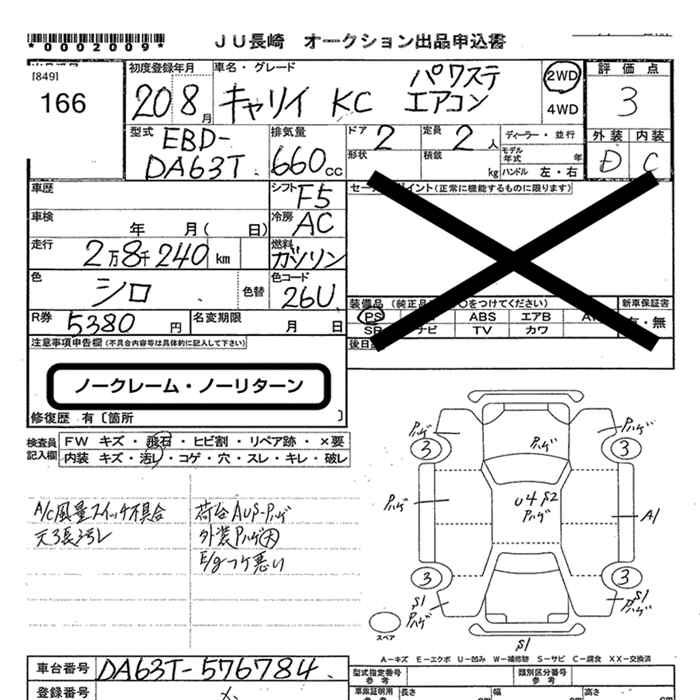 *0002009*
JU長崎 オークション出品申込書
[849]
166
初度登録年月
20 8 月
車名・グレード
キャリイ KC パワステ エアコン
2WD
4WD
評価点
3
外装 内装
D C
型式
EBD-
DA63T
排気量
660 cc
ドア
2
定員
2 人
ディーラー・並行
形状
積載
kg
モデル年式 年
ハンドル 左・右
車歴
シフト
F5
車検 年 月( 日)
冷房
AC
走行
2万8千240 km
燃料
ガソリン
色
シロ
色替
色コード
26U
R券
5380 円
名変期限 月 日
セールスポイント(正常に機能するものに限ります)
装備品 (純正品 ○をつけてください)
新車保証書
PS ABS エアB
SR ナビ TV カワ
有・無
後日
注意事項申告欄(不具合内容等は具体的に記入して下さい)
ノークレーム・ノーリターン
修復歴 有〔箇所 〕
検査員記入欄
FW キズ・飛石・ヒビ割・リペア跡・×要
内装 キズ・汚レ・コゲ・穴・スレ・キレ・破レ
A/C風量スイッチ不具合
天張汚レ
荷台AUS-Pハゲ
外装Pハゲ大
E/gコケ悪い
Pハゲ
3
Pハゲ
Pハゲ
3
Pハゲ
U4 S2
Pハゲ
A1
3
3
S1
Pハゲ
S1
Pハゲ
スペア
S1
A-キズ E-エクボ U-凹み W-補修跡 S-サビ C-腐食 XX-交換済
車台番号
DA63T-576784
登録番号
型式指定番号
参考
類別区分番号
参考
車庫証明用
参考
長さ cm
幅 cm
高さ cm